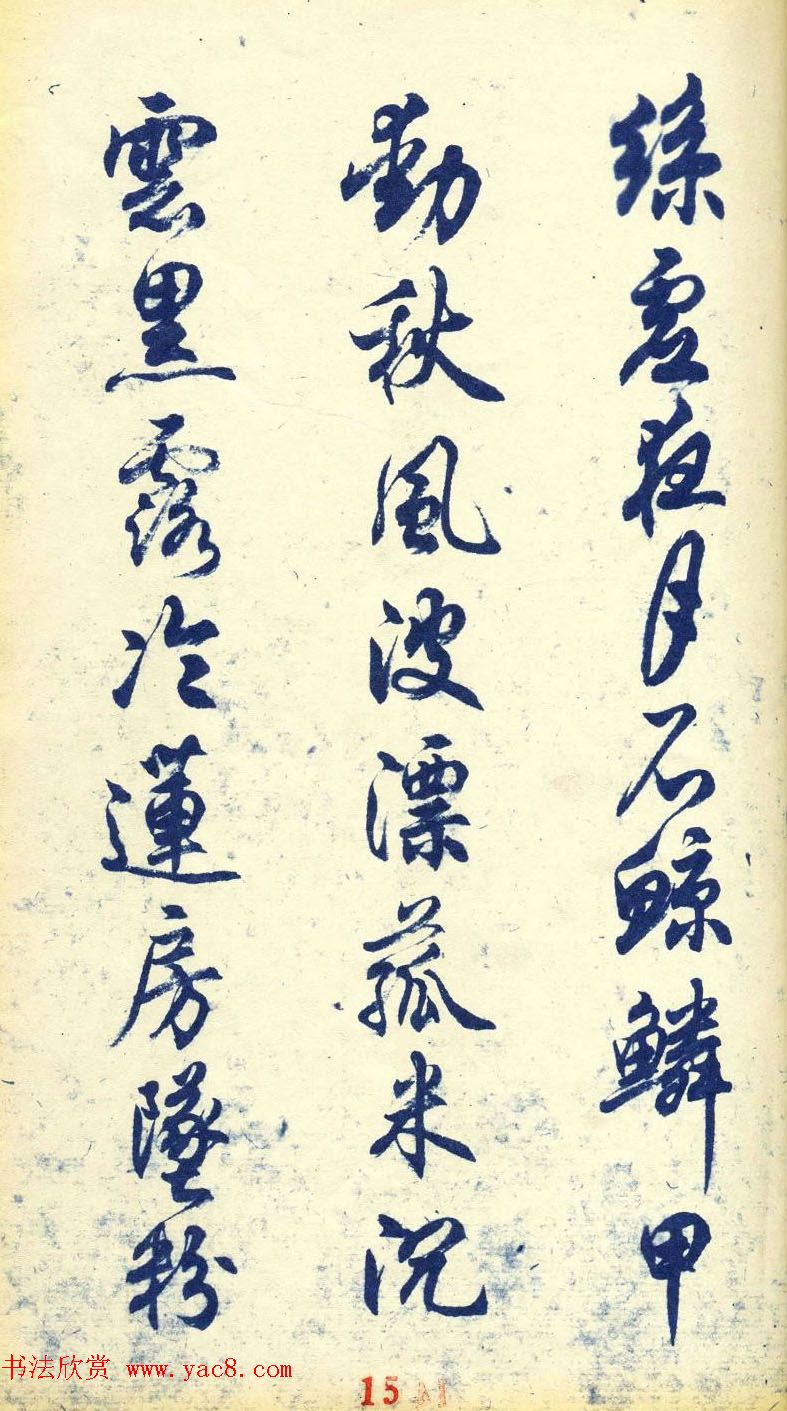 絲虛夜月石鯨鱗甲
動秋風波漂菰米沉
雲黑露冷蓮房墜粉
书法欣赏 www.yac8.com
15